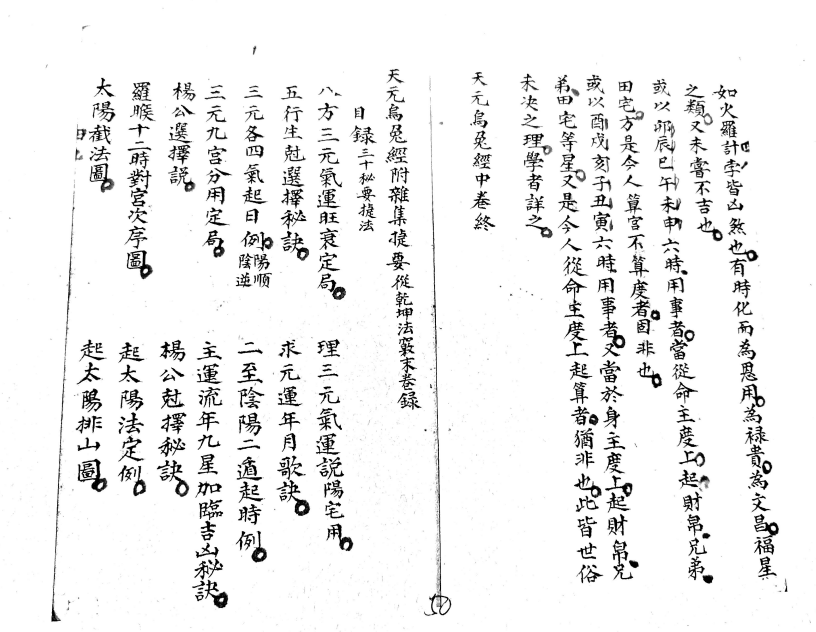 如火羅計孛皆凶煞也有時化而為恩用為祿貴為文昌福星
之類又未嘗不吉也
或以卯辰巳午未申六時用事者當從命主度上起財帛兄弟
田宅方是今人算宮不算度者固非也
或以酉戌亥子丑寅六時用事者又當於身主度上起財帛兄
弟田宅等星又是今人從命主度上起算者猶非也此皆世俗
未决之理學者詳之
天元烏兔經中卷終
天元烏兔經附雜集捷要從乾坤法竅末卷錄
目錄三十秘要捷法
八方三元氣運旺衰定局
理三元氣運説陽宅用
五行生尅選擇秘訣
求元運年月歌訣
三元各四氣起日例陽順陰逆
二至陰陽二遁起時例
三元九宮分用定局
主運流年九星加臨吉凶秘訣
楊公選擇説
楊公尅擇秘訣
羅睺十二時對宮次序圖
起太陽法定例
太陽截法圖
起太陽排山圖
50